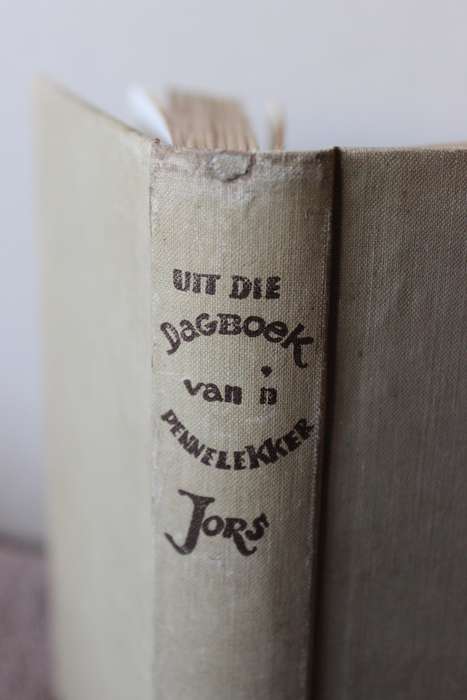 UIT DIE
DAGBOEK
van 'n
PENNELEKKER
JORS